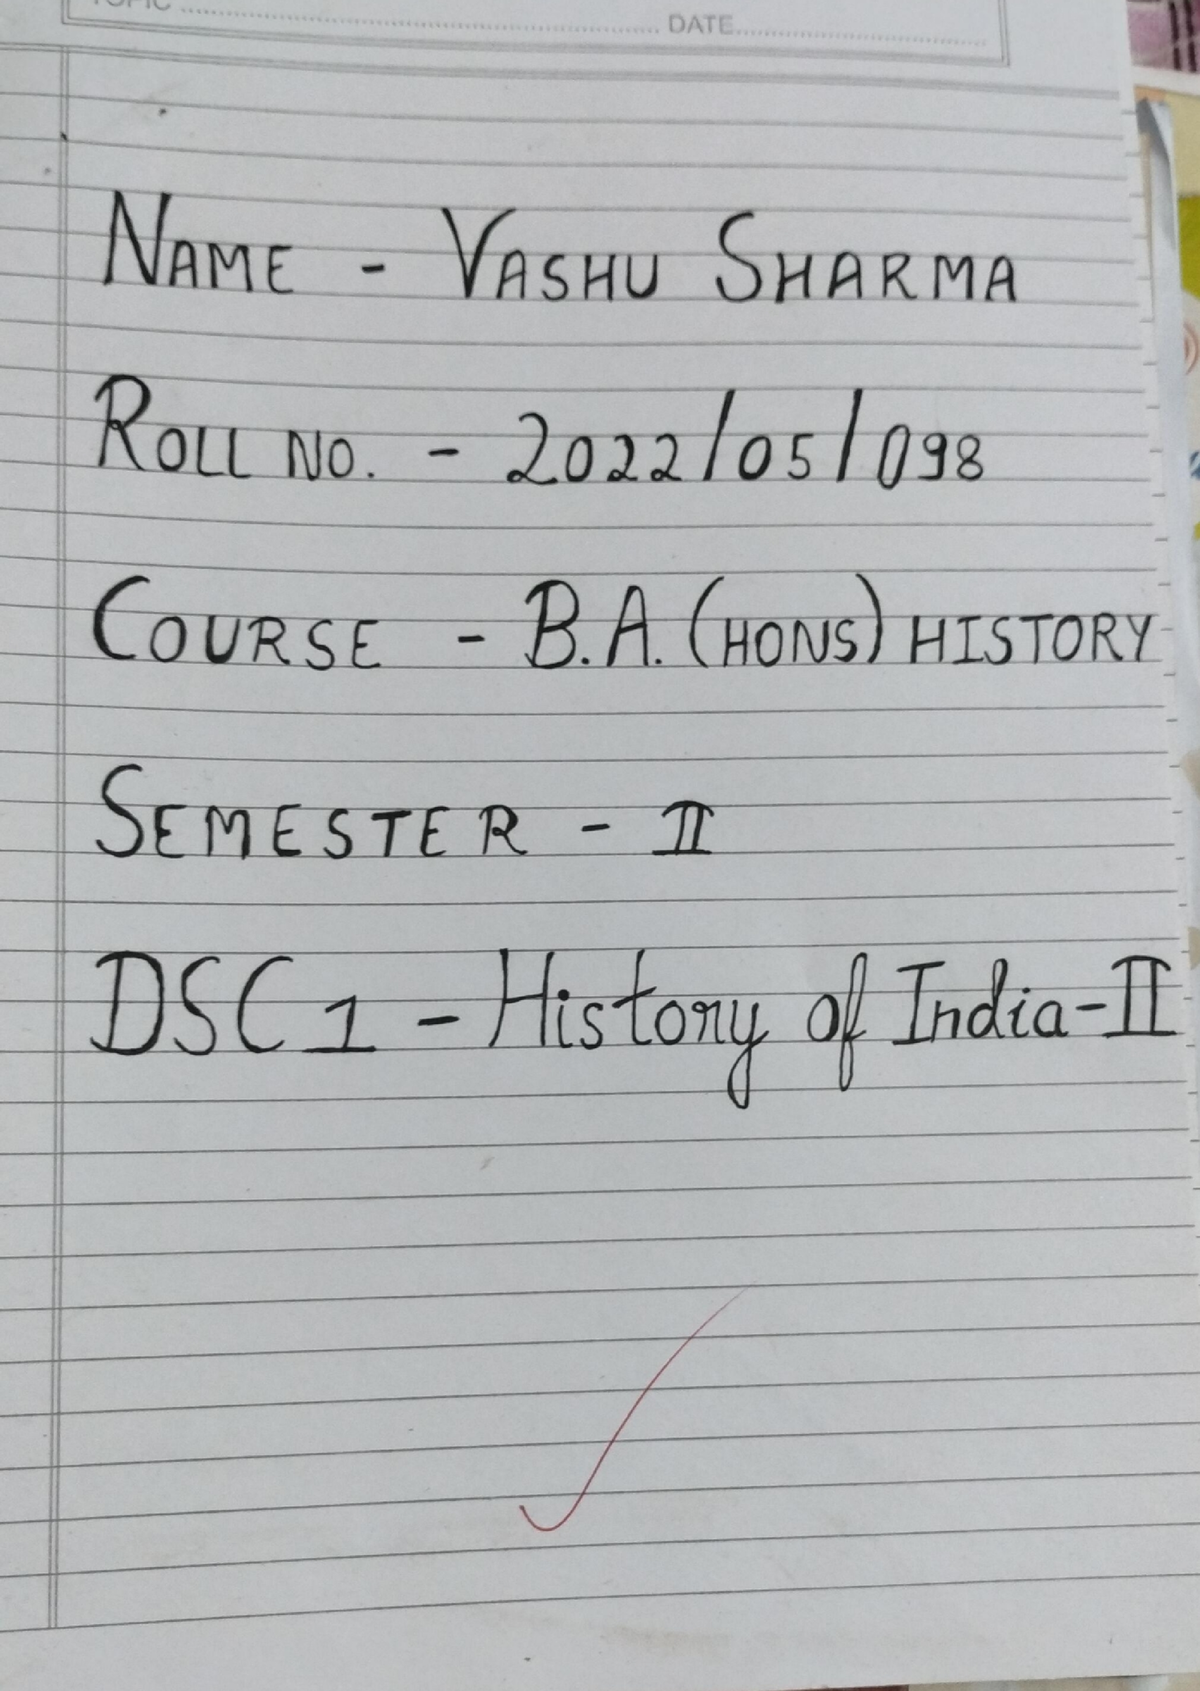 TOPIC ........................ DATE........................
NAME - VASHU SHARMA
ROLL NO. - 2022/05/098
COURSE - B.A. (HONS) HISTORY
SEMESTER - II
DSC 1 - History of India-II